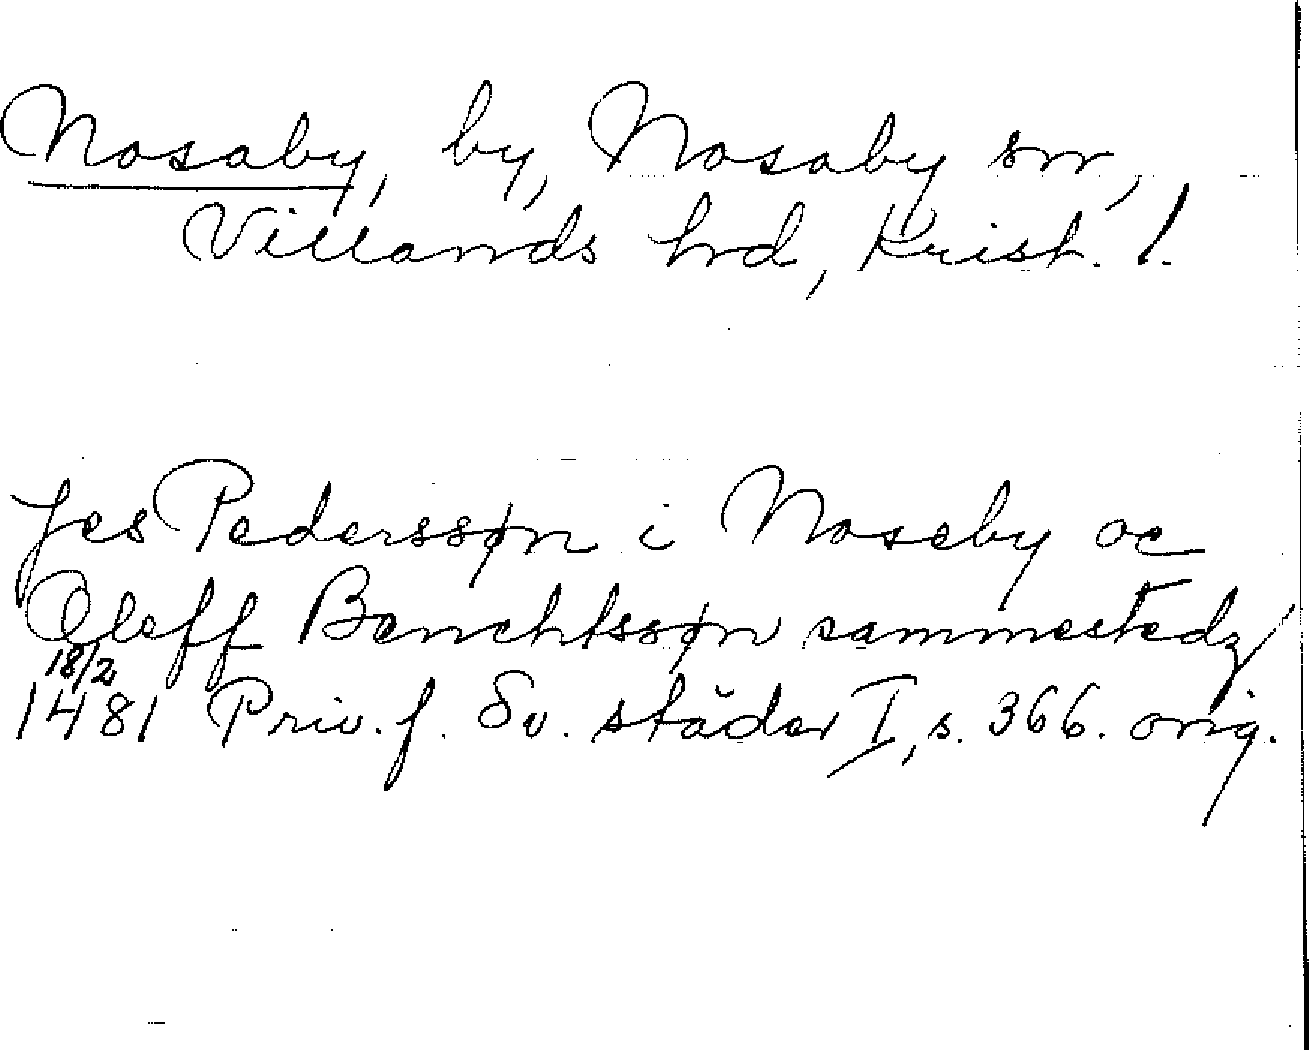 Nosaby, by, Nosaby sn,
Villands hrd, Krist. l.
Jes Pederssøn i Noseby oc
Oleff Benchtssøn sammestedz
18/2
1481 Priv. f. Sv. städer I, s. 366. orig.